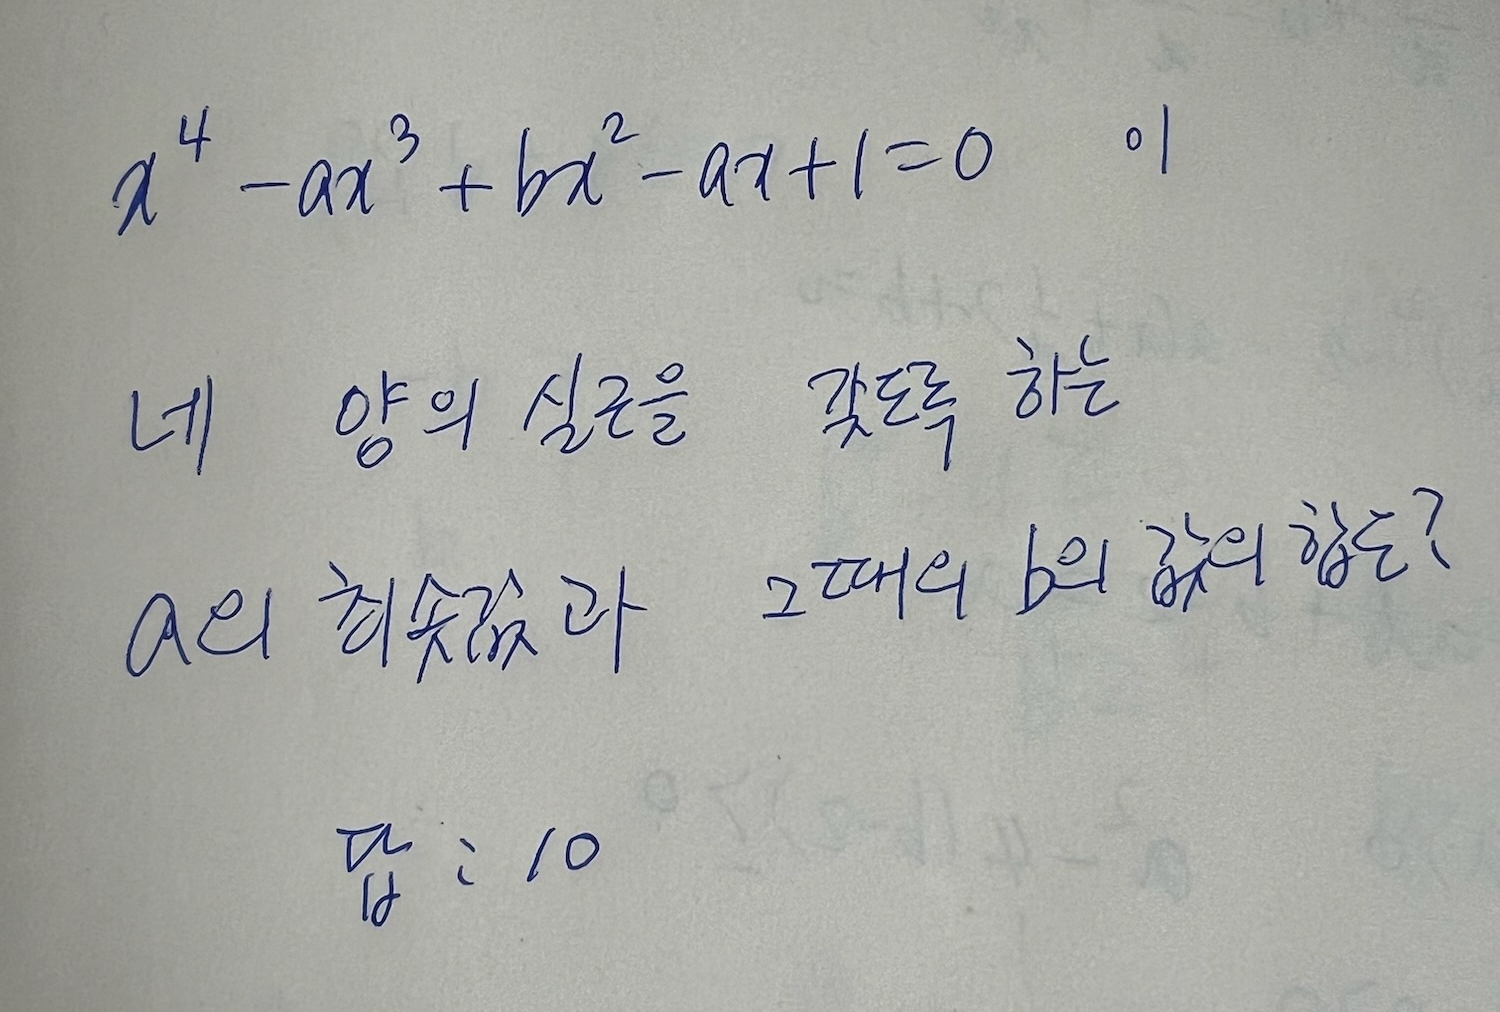 x⁴ - ax³ + bx² - ax + 1 = 0 이
네 양의 실근을 갖도록 하는
a의 최솟값과 그때의 b의 값의 합은?
답 : 10